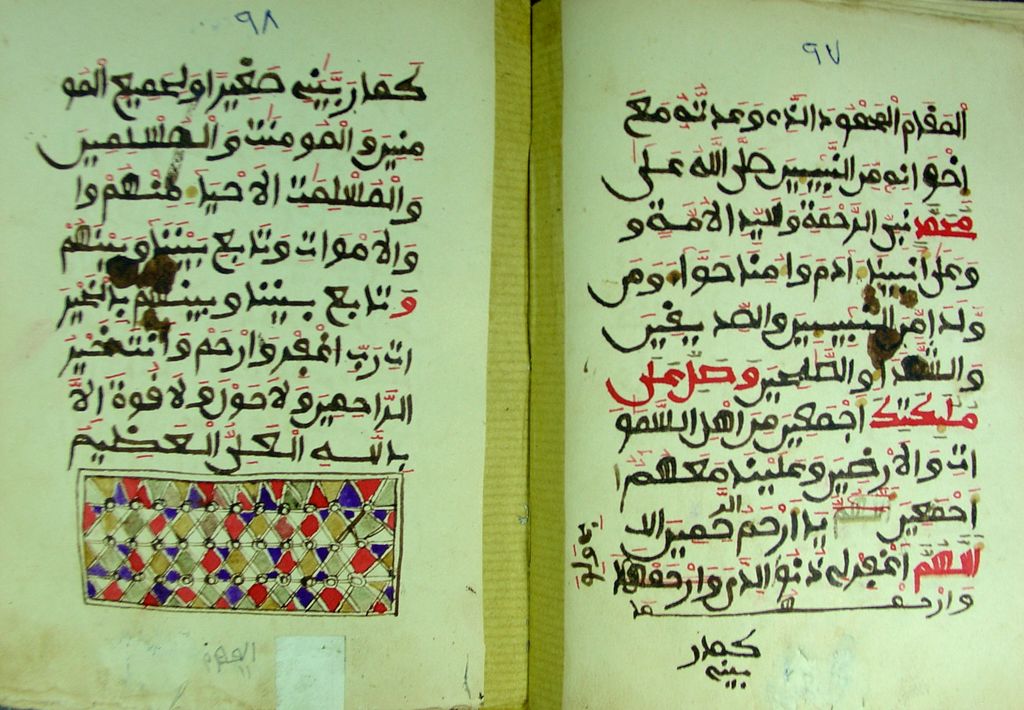 ٩٧
المقام المحمود الذي وعدته مع
اخوانه من النبيين صلى الله على
محمد نبي الرحمة وسيد الامة و
وعلى ابينا ادم وامنا حواء ومن
ولدا من النبيين والصديقين
والشهداء والصلحين وصل على
مليكتك اجمعين من اهل السمو
ات والارضين وعلينا معهم
اجمعين يا ارحم الرحمين
اللهم اغفر لي ذنوبي ولوالدي وارحمهما
كما ر
بيني
٩٨
كما ربيني صغيرا ولجميع المو
منين والمومنت والمسلمين
والمسلمت الاحياء منهم وا
والاموات وتابع بيننا وبينهم
و تابع بيننا وبينهم بالخير
ات رب اغفر وارحم وانت خير
الراحمين ولا حول ولا قوة الا
بالله العلي العظيم